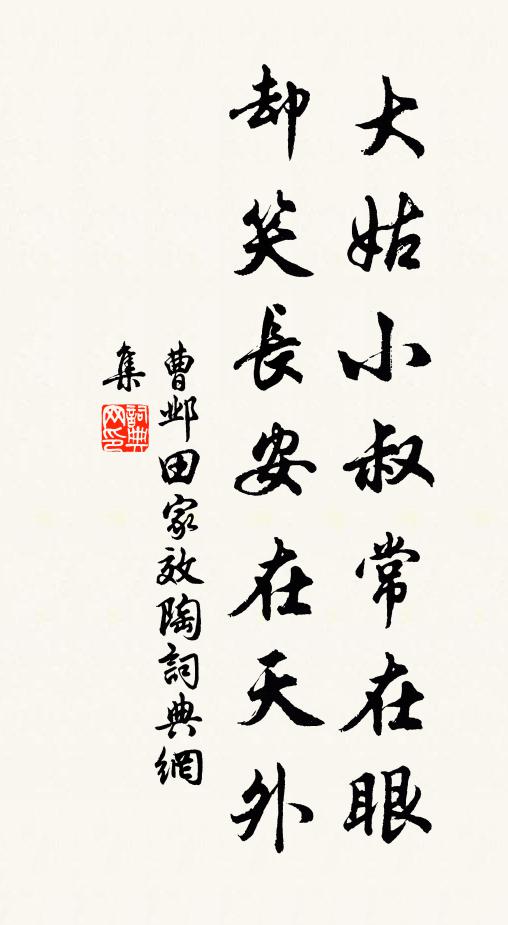 大姑小叔常在眼
却笑長安在天外
曹邺田家效陶詞典網
集
詞典网印